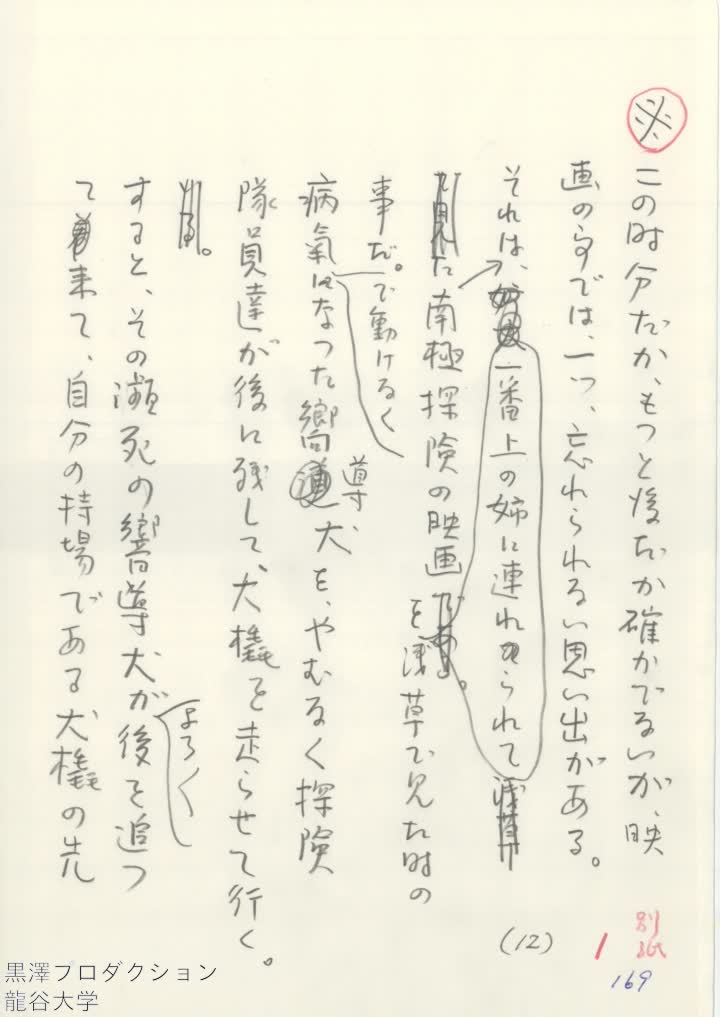 ※
この時分だか、もつと後だか確かでないが、映
画の事では、一つ、忘れられない思い出がある。
それは、一番上の姉に連れられて浅草
で見た南極探険の映画である。
を浅草で見た時の
事だ。
で動けなく
病氣になつた嚮導犬を、やむなく探険
導
隊員達が後に残して、犬橇を走らせて行く。
すると、その瀕死の嚮導犬が後を追つ
よろよろ
て来て、自分の持場である犬橇の先
(12)
1
別紙
169
黒澤プロダクション
龍谷大学